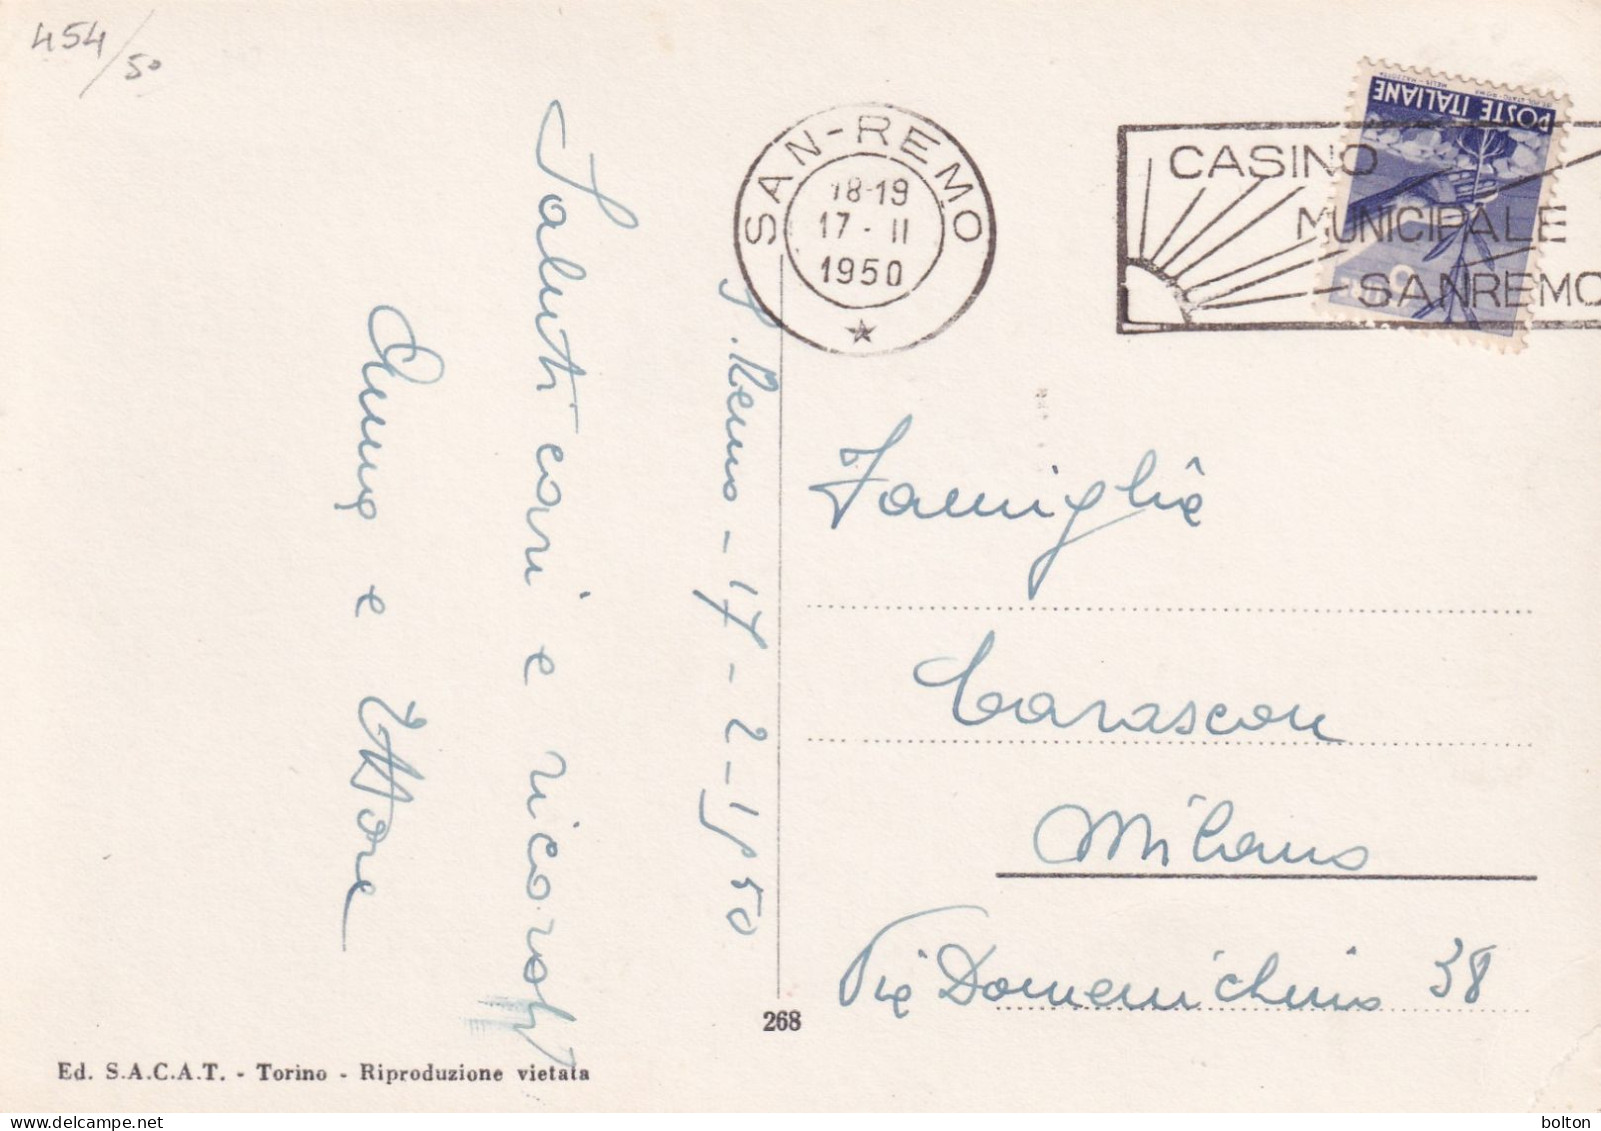 454/50
SAN-REMO
18-19
17-II
1950
CASINO
MUNICIPALE
SANREMO
POSTE ITALIANE
S. Remo - 17 - 2 - 1950
Saluti cari e ricordi
Anna e Ettore
Famiglia
Tarascon
Milano
Via Domenichino 38
268
Ed. S.A.C.A.T. - Torino - Riproduzione vietata
delcampe.net
bolton